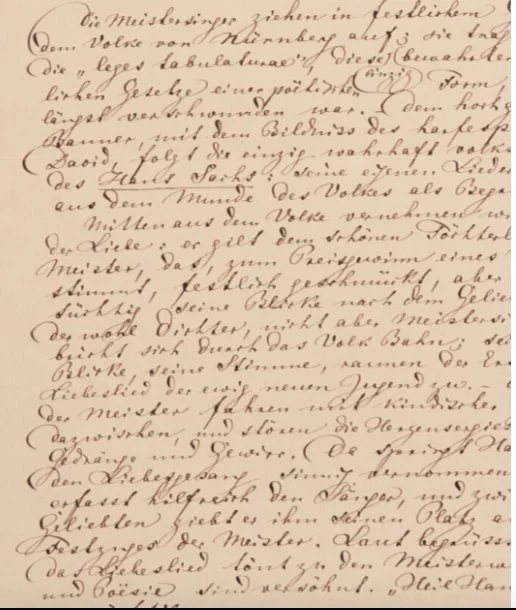 Die Meistersinger ziehen in festlichem
dem Volke von Nürnberg auf; sie
die „leges tabulaturae", diese bewahrten
einzig
lichen Gesetze einer poëtischen Form,
längst verschwunden war. – dem hoch
Banner, mit dem Bildniss des harfesp
David, folgt die einzig wahrhaft volks
des Hans Sachs: seine eigenen Lieder
aus dem Munde des Volkes als Beg
Mitten aus dem Volke vernehmen
der Liebe: er gilt dem schönen Töchterl
Meister, das, zum Preisgewinn eines
stimmt, festlich geschmückt, aber
süchtig seine Blicke nach dem Gelie
der wohl Dichter, nicht aber Meistersi
bricht sich durch das Volk Bahn; sei
Blicke, seine Stimme, raunen der
Liebeslied der ewig neuen Jugend zu. –
der Meister fahren mit kindischer
dazwischen, und stören die Herzensergies
Gedränge und Gewirr. Da springt Ha
den Liebesgesang sinnig vernommen
erfasst hilfreich den Sänger, und zwi
Geliebten giebt er ihm seinen Platz a
Festzuges der Meister. Laut begrüsst
das Liebeslied tönt zu den Meisterw
und Poësie sind versöhnt. „Heil Han